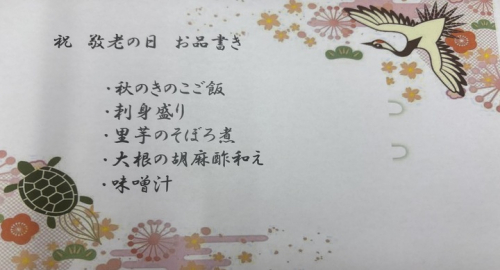 祝 敬老の日 お品書き
・秋のきのこご飯
・刺身盛り
・里芋のそぼろ煮
・大根の胡麻酢和え
・味噌汁